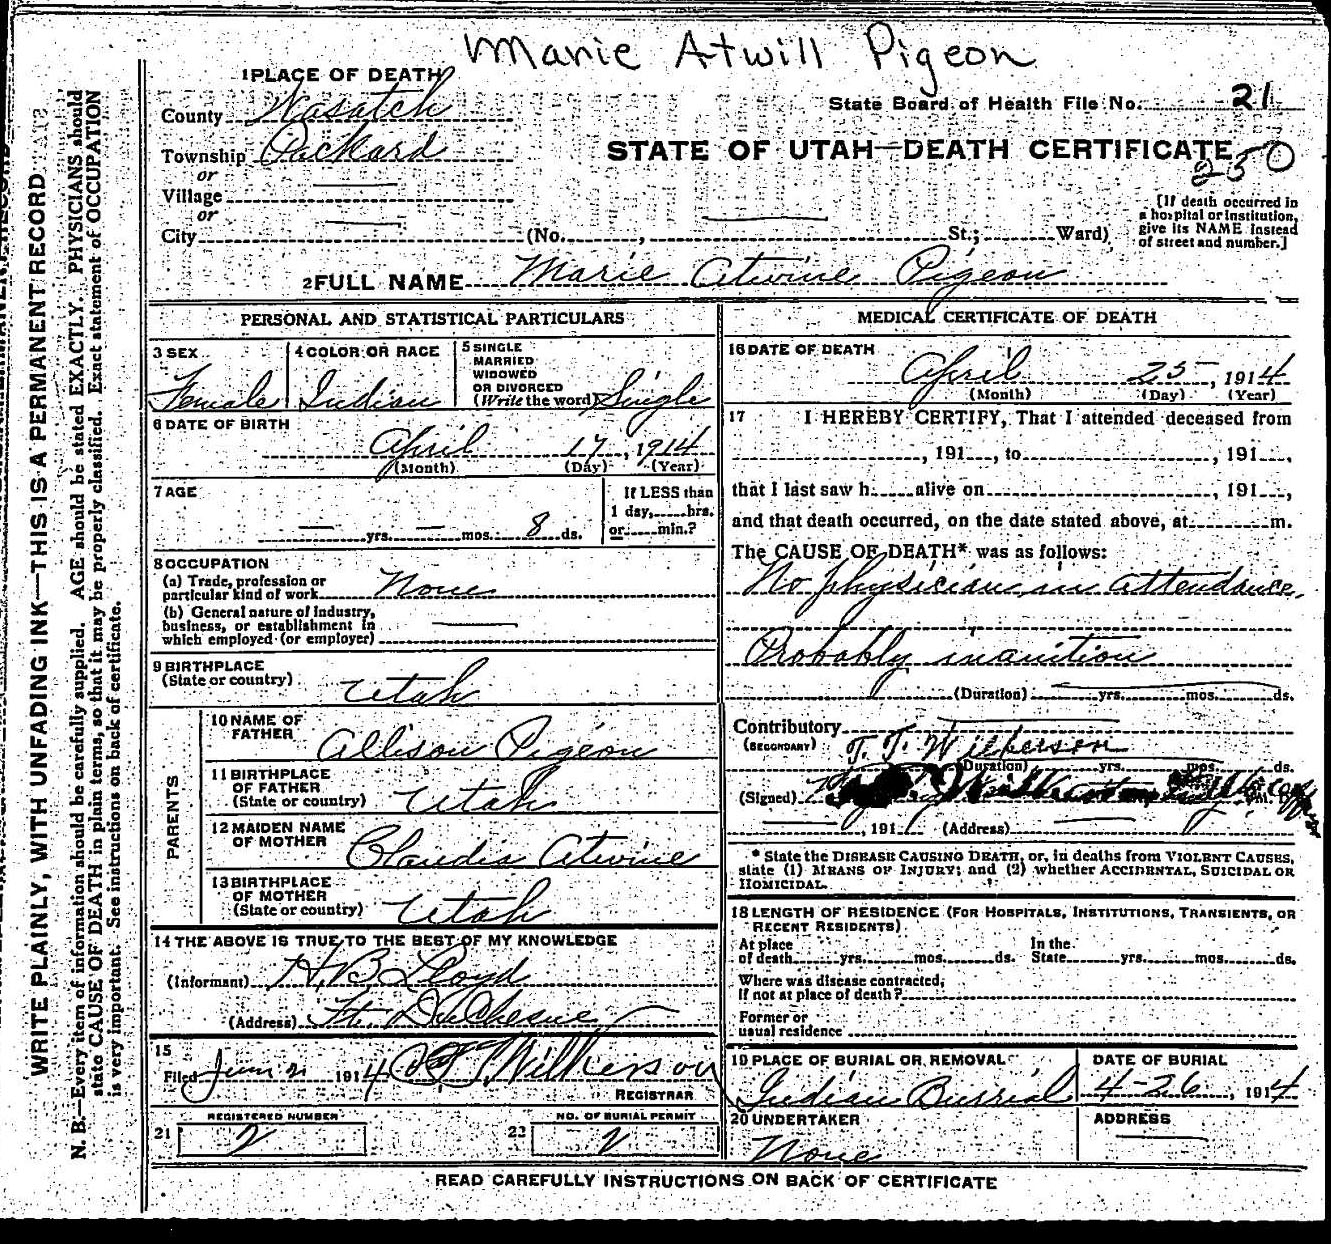 Marie Atwill Pigeon
1 PLACE OF DEATH
County Wasatch
State Board of Health File No. 21
Township Packard
STATE OF UTAH—DEATH CERTIFICATE
250
or
Village
or
City (No. , St.; Ward)
[If death occurred in
a hospital or institution,
give its NAME instead
of street and number.]
2 FULL NAME Marie Atwine Pigeon
PERSONAL AND STATISTICAL PARTICULARS
3 SEX
Female
4 COLOR OR RACE
Indian
5 SINGLE
MARRIED
WIDOWED
OR DIVORCED
(Write the word) Single
6 DATE OF BIRTH
April 17, 1914
(Month) (Day) (Year)
7 AGE
— yrs. — mos. 8 ds.
If LESS than
1 day, hrs.
or min.?
8 OCCUPATION
(a) Trade, profession or
particular kind of work None
(b) General nature of industry,
business, or establishment in
which employed (or employer)
9 BIRTHPLACE
(State or country) Utah
PARENTS
10 NAME OF
FATHER Allison Pigeon
11 BIRTHPLACE
OF FATHER
(State or country) Utah
12 MAIDEN NAME
OF MOTHER Claudia Atwine
13 BIRTHPLACE
OF MOTHER
(State or country) Utah
14 THE ABOVE IS TRUE TO THE BEST OF MY KNOWLEDGE
(Informant) H. B. Lloyd
(Address) Ft. DuChesne
15
Filed 1914 Wilkerson
REGISTRAR
REGISTERED NUMBER
21 2
NO. OF BURIAL PERMIT
22 2
MEDICAL CERTIFICATE OF DEATH
16 DATE OF DEATH
April 25, 1914
(Month) (Day) (Year)
17 I HEREBY CERTIFY, That I attended deceased from
, 191 , to , 191 ,
that I last saw h alive on , 191 ,
and that death occurred, on the date stated above, at m.
The CAUSE OF DEATH* was as follows:
No physician in attendance.
Probably inanition
(Duration) yrs. mos. ds.
Contributory
(SECONDARY) T. T. Wilkerson
(Duration) yrs. mos. ds.
(Signed)
, 191 (Address)
* State the DISEASE CAUSING DEATH, or, in deaths from VIOLENT CAUSES,
state (1) MEANS OF INJURY; and (2) whether ACCIDENTAL, SUICIDAL OR
HOMICIDAL.
18 LENGTH OF RESIDENCE (FOR HOSPITALS, INSTITUTIONS, TRANSIENTS, OR
RECENT RESIDENTS)
At place
of death yrs. mos. ds.
In the
State yrs. mos. ds.
Where was disease contracted,
if not at place of death?
Former or
usual residence
19 PLACE OF BURIAL OR REMOVAL
Indian Burrial
DATE OF BURIAL
4-26, 1914
20 UNDERTAKER
None
ADDRESS
READ CAREFULLY INSTRUCTIONS ON BACK OF CERTIFICATE
WRITE PLAINLY, WITH UNFADING INK—THIS IS A PERMANENT RECORD
N. B.—Every item of information should be carefully supplied. AGE should be stated EXACTLY. PHYSICIANS should
state CAUSE OF DEATH in plain terms, so that it may be properly classified. Exact statement of OCCUPATION
is very important. See instructions on back of certificate.